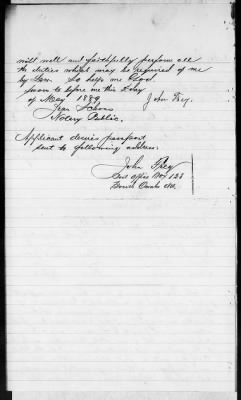 will well and faithfully perform all
the duties which may be required of me
by law. So help me God.
Sworn to before me this day
of May 1889 John Frey.
Notary Public.
Applicant desires passport
sent to following address.
John Frey
Post Office Box 123